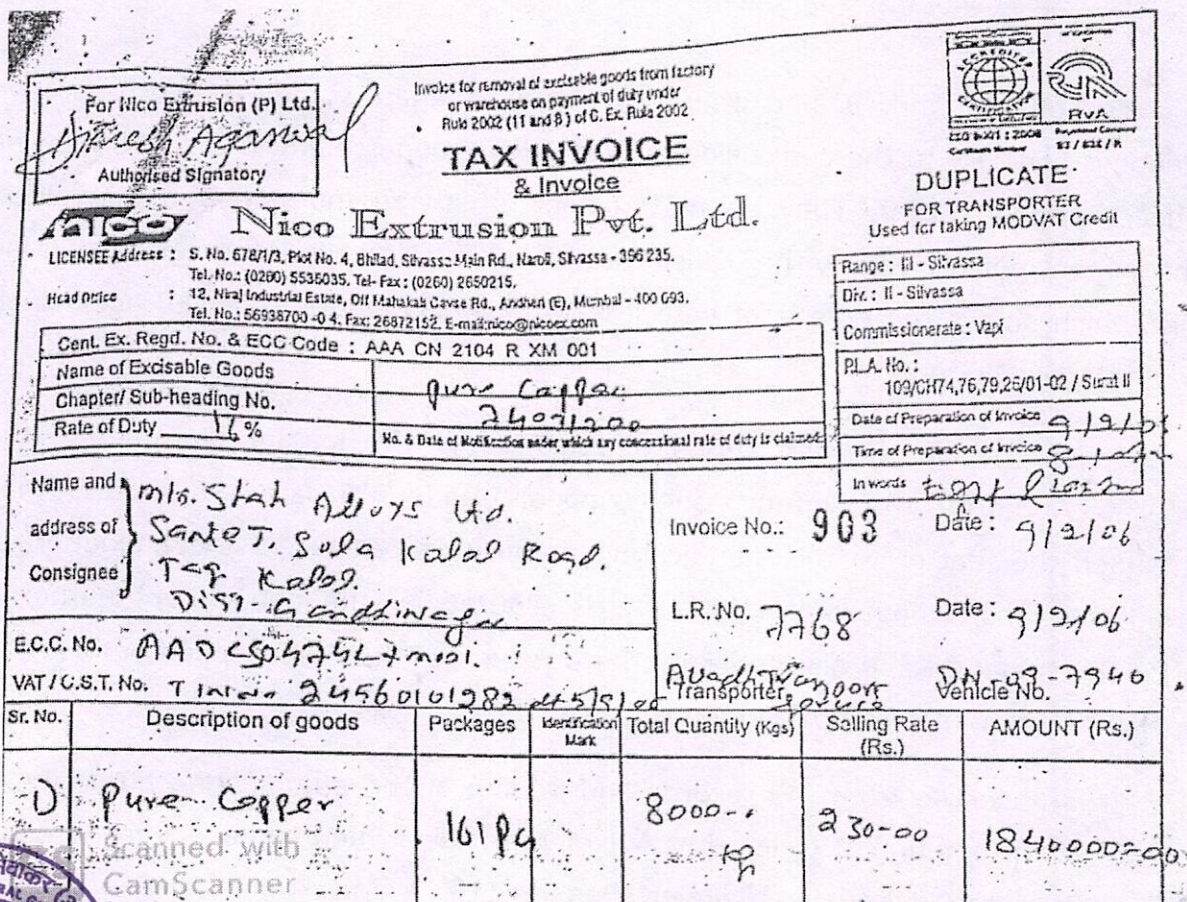 For Nico Extrusion (P) Ltd.
Dinesh Agarwal
Authorised Signatory
Invoice for removal of excisable goods from factory
or warehouse on payment of duty under
Rule 2002 (11 and 8) of C. Ex. Rule 2002
TAX INVOICE
& Invoice
RVA
DUPLICATE
FOR TRANSPORTER
Used for taking MODVAT Credit
Nico Extrusion Pvt. Ltd.
LICENSEE Address : S. No. 678/1/3, Plot No. 4, Bhilad, Silvassa Main Rd., Naroli, Silvassa - 396 235.
Tel. No.: (0260) 5535035. Tel- Fax : (0260) 2650215.
Head Office : 12, Niraj Industrial Estate, Off Mahakali Cavse Rd., Andheri (E), Mumbai - 400 093.
Tel. No.: 56938700 -0 4. Fax: 26872152. E-mail:nico@nicoex.com
Range : III - Silvassa
Div. : II - Silvassa
Commissionerate : Vapi
P.L.A. No. :
109/CH74,76,79,26/01-02 / Surat II
Date of Preparation of Invoice 9/2/06
Time of Preparation of Invoice
In words
Cent. Ex. Regd. No. & ECC Code : AAA CN 2104 R XM 001
Name of Excisable Goods Pure Copper
Chapter/ Sub-heading No.
Rate of Duty 16 %
No. & Date of Notification under which any concessional rate of duty is claimed
Name and address of Consignee
M/s. Shah Alloys Ltd.
Sola Kalol Road.
Kalol.
Dist- Gandhinagar
Invoice No.: 903 Date : 9/2/06
L.R. No. 7768 Date : 9/2/06
E.C.C. No.
VAT / C.S.T. No. Tin No 24560101282
Transporter Avadh Transport Service
Vehicle No. DN-09-7940
Sr. No. Description of goods Packages Identification Mark Total Quantity (Kgs) Selling Rate (Rs.) AMOUNT (Rs.)
1) Pure Copper 8000 230-00 1840000-00
Scanned with
CamScanner